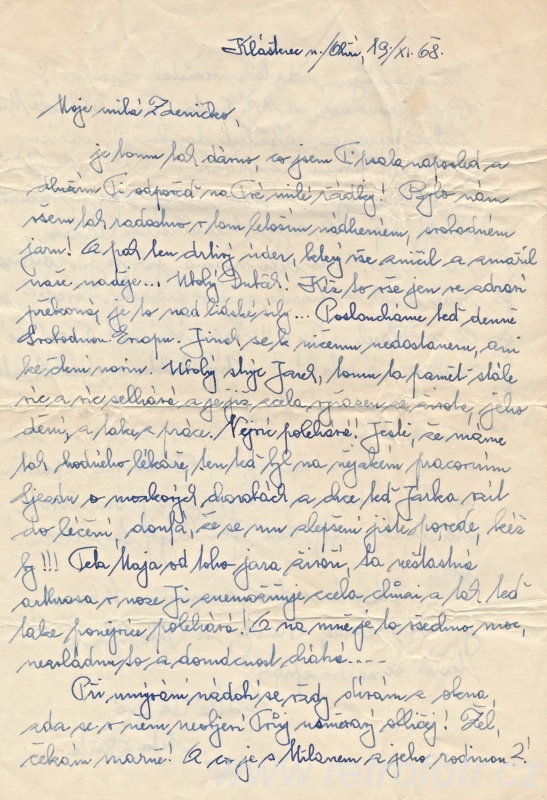 Klášterec n./Ohří, 19./XI. 68.
Moje milá Zdeničko,
je tomu tak dávno, co jsem Ti psala naposled a
dlužím Ti odpověď na Tvé milé řádky! Bylo nám
všem tak radostno v tom letošním nádherném, svobodném
jaru! A pak ten drtivý úder, který vše zničil a zmařil
naše naděje... Ubohý Dubček! Kéž to vše jen ve zdraví
překoná, je to nad lidské síly... Posloucháme teď denně
Svobodnou Evropu. Jinak se k ničemu nedostanem, ani
ke čtení novin. Ubohý strýc Jarek, tomu ta paměť stále
víc a víc selhává a je již zcela vyřazen ze života, jeho
dění, a také z práce. Nejvíc polehává! Ještě, že máme
tak hodného lékaře, ten teď byl na nějakém pracovním
sjezdu o mozkových chorobách a chce teď Jarka vzít
do léčení, doufá, že se mu zlepšení jistě povede, kéž
by!!! Teta Mája od toho jara živoří, ta nešťastná
arthrosa v noze Jí znemožňuje zcela chůzi a tak teď
také ponejvíce polehává! A na mně je to všechno moc,
nezvládnu to a domácnost
Při umývání nádobí se vždy dívám z okna,
zda se v něm neobjeví Tvůj usměvavý obličej! Žel,
čekám marně! A co je s Milanem a jeho rodinou?!